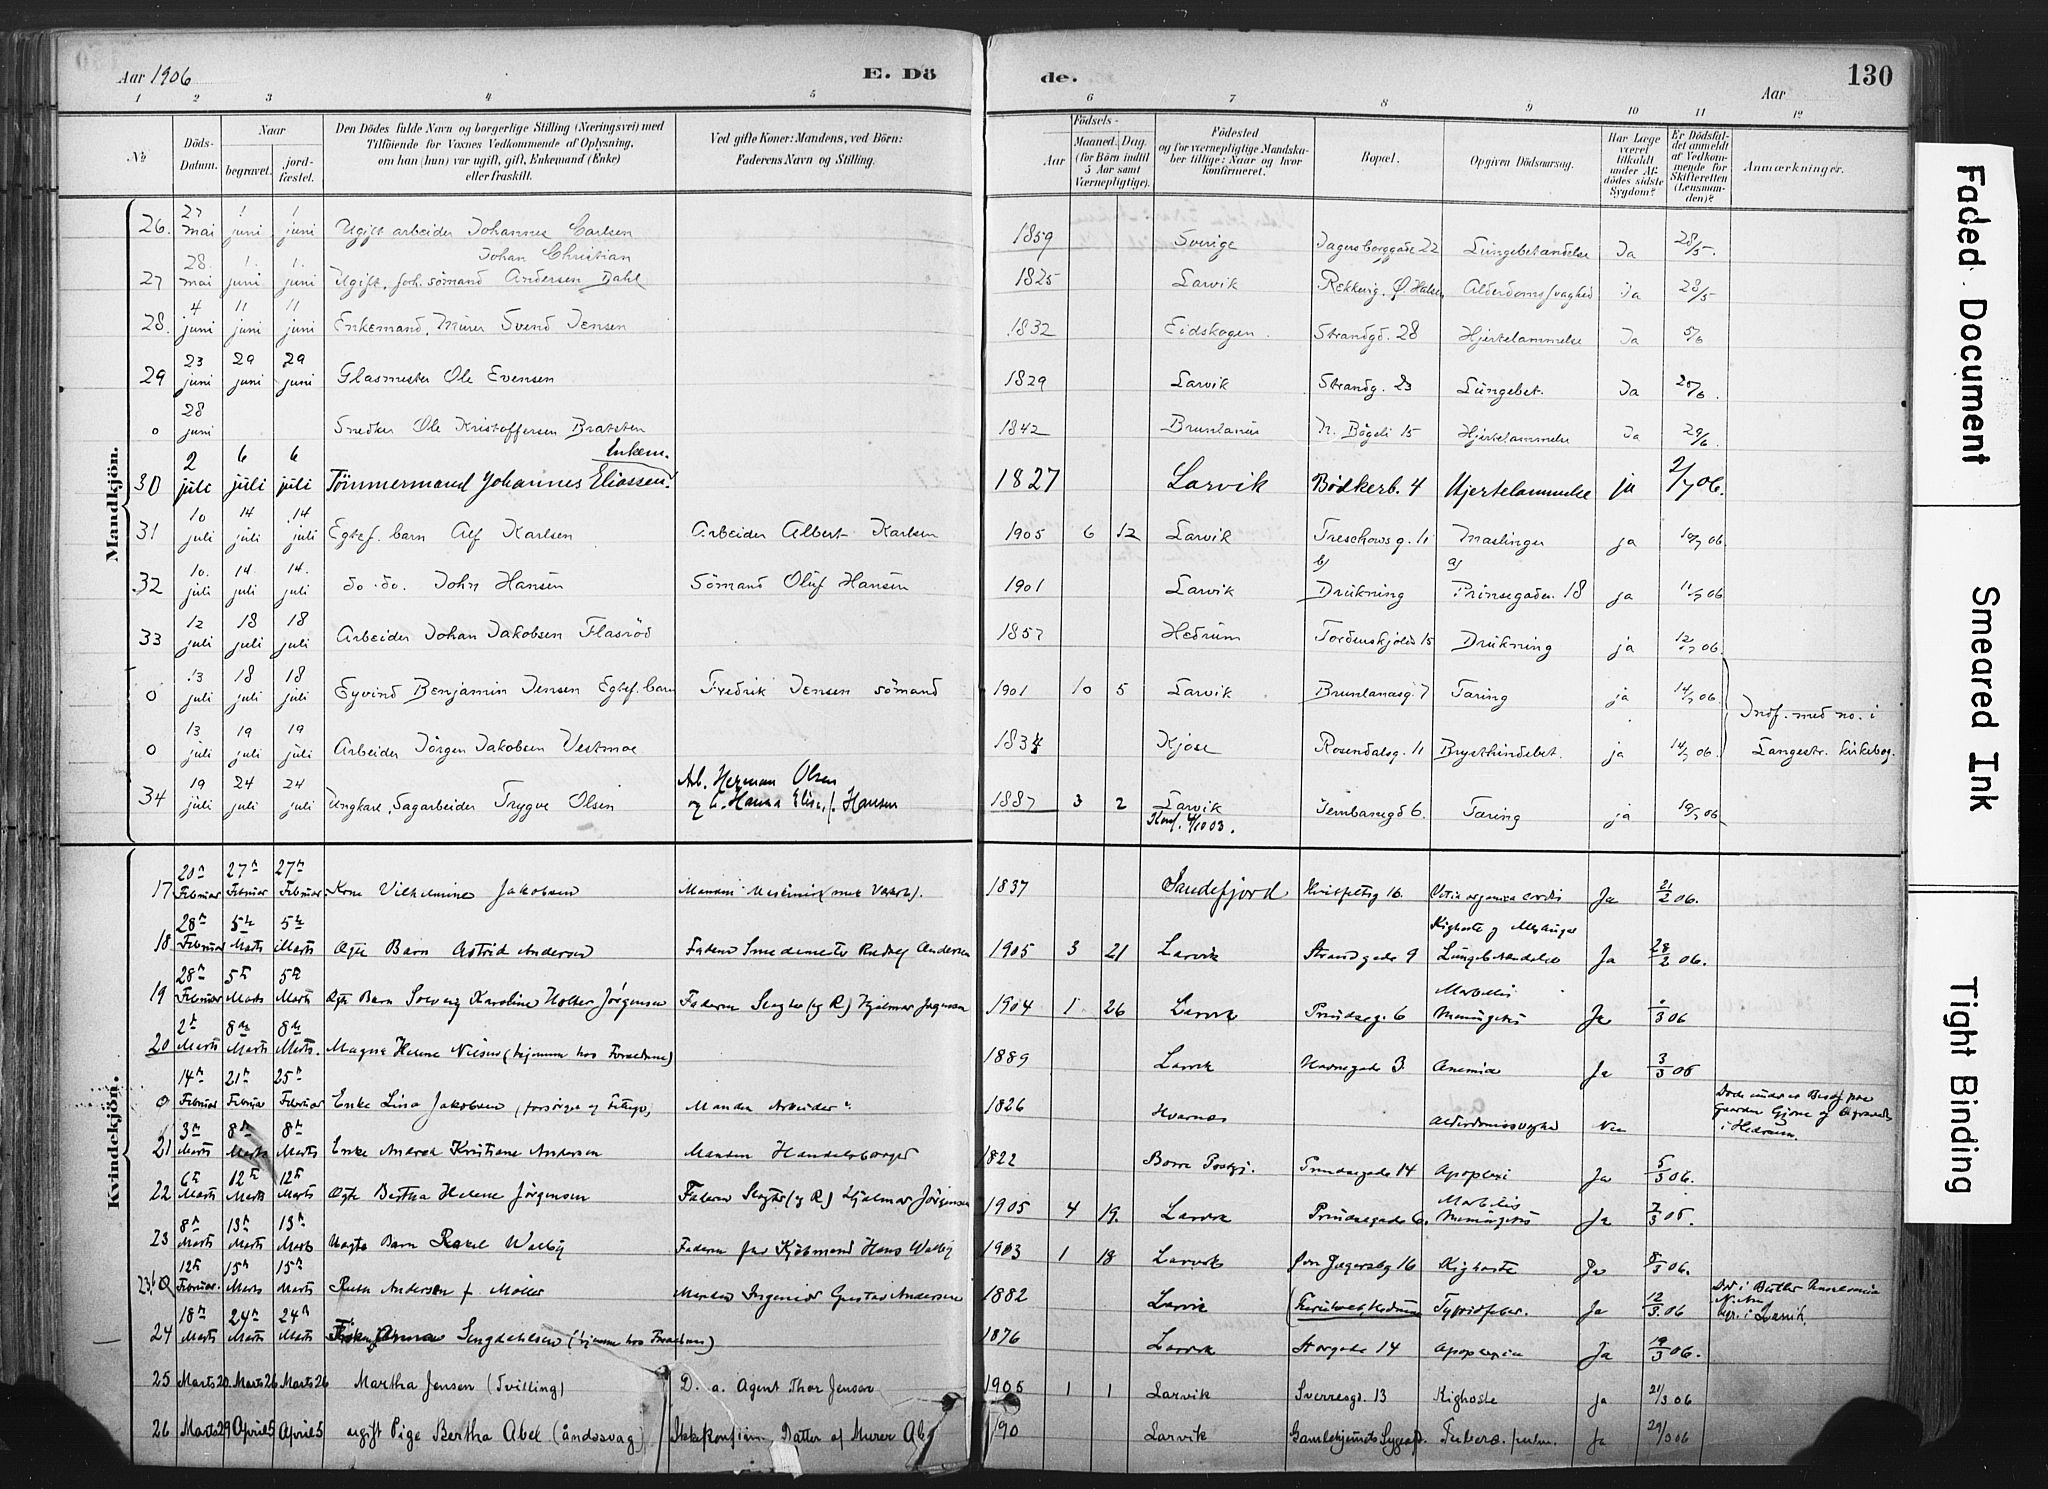 Aar 1906 E. Dö de. Aar 130
1 2 3 4 5 6 7 8 9 10 11 12
No
Döds-Datum.
Naar begravet. jordfæstet.
Den Dödes fulde Navn og borgerlige Stilling (Næringsvei) med Tilföiende for Voxnes Vedkommende af Oplysning, om han (hun) var ugift, gift, Enkemand (Enke) eller fraskilt.
Ved gifte Koner: Mandens, ved Börn: Faderens Navn og Stilling.
Födsels- Aar Maaned. Dag. (for Börn indtil 5 Aar samt Værnepligtige).
Födested og for værnepligtige Mandskaber tillige: Naar og hvor konfirmeret.
Bopæl.
Opgiven Dödsaarsag.
Har Læge været tilkaldt under Afdödes sidste Sygdom?
Er Dödsfaldet anmeldt af Vedkommende for Skifteretten (Lensmanden)?
Anmærkninger.
Mandkjön.
26. 27 mai 1 juni 1 juni Ugift arbeider Johannes Carlsen 1859 Sverige Jagersborggade 22 Lungebetændelse Ja 28/5.
27 28. mai 1. juni 1. juni Ugift, forh. sömand Johan Christian Andersen Dahl 1825 Larvik Rekkevig. Ø. Halsen Alderdomssvaghed Ja 28/5
28. 4 juni 11 juni 11 juni Enkemand, Murer Svend Jensen 1832 Eidskogen Strandgd. 28 Hjertelammelse Ja 5/6
29 23 juni 29 juni 29 juni Glasmester Ole Evensen 1829 Larvik Strandg. 23 Lungebet. Ja
0 28 juni Snedker Ole Kristoffersen Bratsten 1842 Brunlanæs N. Bögeli 15 Hjertelammelse Ja 29/6
30 2 juli 6 juli 6 juli Tömmermand Johannes Eliassen Enkem. 1827 Larvik Bödkerb. 4 Hjertelammelse ja 2/7 06.
31 10 juli 14 juli 14 juli Egtef. barn Alf Karlsen Arbeider Albert Karlsen 1905 6 12 Larvik Treschowsg. 11 Mæslinger ja 10/7 06
32 10. juli 14. juli 14. juli do. do. John Hansen Sömand Oluf Hansen 1901 Larvik b) Drukning a) Prinsegaden 18 ja 11/7 06
33 12 juli 18 juli 18 juli Arbeider Johan Jakobsen Flasröd 1857 Hedrum Tordenskjolds 15 Drukning ja 12/7 06.
0 13 juli 18 juli 18 juli Eyvind Benjamin Jensen Egtef. barn Fredrik Jensen sömand 1901 10 5 Larvik Brunlanæsg. 7 Tæring ja 14/7 06 Indf. med no. i
0 13 juli 19 juli 19 juli Arbeider Jörgen Jakobsen Vestmoe 1834 Kjose Rosendalsg. 11 Brysthindebet. ja 14/7 06. Langestr. kirkebog.
34 19 juli 24 juli 24 juli Ungkarl, Sagarbeider Trygve Olsen Arb. Herman Olsen og h. Hanna Elise, f. Hansen 1887 3 2 Larvik Konf. 4/10 03. Jernbanegd 6. Tæring ja 19/7 06
Kvindekjön.
17 20de Februar 27de Februar 27de Februar Kone Vilhelmine Jakobsen Manden 1837 Sandefjord Hvitfeltsg 16. Vitia organica cordis Ja 21/2 06.
18 28de Februar 5te Marts 5te Marts Ægte Barn Astrid Andersen Faderen Smedemester Andersen 1905 3 21 Larvik Strandgade 9 Kighoste og Mæslinger Lungebetændelse Ja 28/2 06.
19 28de Februar 5te Marts 5te Marts Ægte Barn Solveig Karoline Holter Jörgensen Faderen Slagter (og R) Hjalmar Jørgensen 1904 1 26 Larvik Prindseg. 6 Morbilli Meningitis Ja /3 06
20 2de Marts 8de Marts 8de Marts. Magna Helene Nilsen (hjemme hos Forældrene) 1889 Larvik Havnegade 3. Anemia Ja 3/3 06
0 14de Februar 21de Februar 25de Februar Enke Lina Jakobsen Manden Arbeider 1826 Hvarnæs Alderdomssvaghed Nei Gaarden Gjone og begravedes i Hedrum.
21 3de Marts 8de Marts 8de Marts Enke Andrea Kristiane Andersen Manden Handelsborger 1822 Borre Prindsegade 14 Apoplexi Ja 5/3 06.
22 6te Marts 12te Marts 12te Marts Ægte Bertha Helene Jörgensen Faderen Slagter (og R) Hjalmar Jörgensen 1905 4 19. Larvik Prindsegade 6. Morbilli Meningitis Ja 7/3 06.
23 8de Marts 13de Marts 13de Marts Uægte Barn Rakel Walby Faderen Kjöbmand Hans Walby 1903 1 18 Larvik Jagersbg 16 Kighoste Ja 8/3 06.
23b 12te Februar. 15de Marts 15de Marts Ruth Andersen f. Möller Manden Ingeniör Gustav Andersen 1882 Larvik Hedrum Tyfoidfeber. Ja 12/3. 06 Död i Butler Pennsylvania N. Am. bgr. i Larvik.
24 18de Marts 24de Marts 24de Marts Fröken Anna (hjemme hos Forældrene) 1876 Larvik Storgade 14 Apoplexia Ja 19/3 06.
25 Marts 20 Marts 26 Marts 26 Martha Jensen (Tvilling) D. a. Agent Thor Jensen 1905 1 1 Larvik Sverresgd. 13 Kighoste ja 21/3 06
26 Marts 29 April 5 April 5 ugift Pige Bertha Abel (åndssvag) Ikke konfirm. Datter af Murer Abel 90 Larvik Gamlehjemmets Sygeafd. Tuberc. pulm. Ja 29/3 06
Faded Document
Smeared Ink
Tight Binding